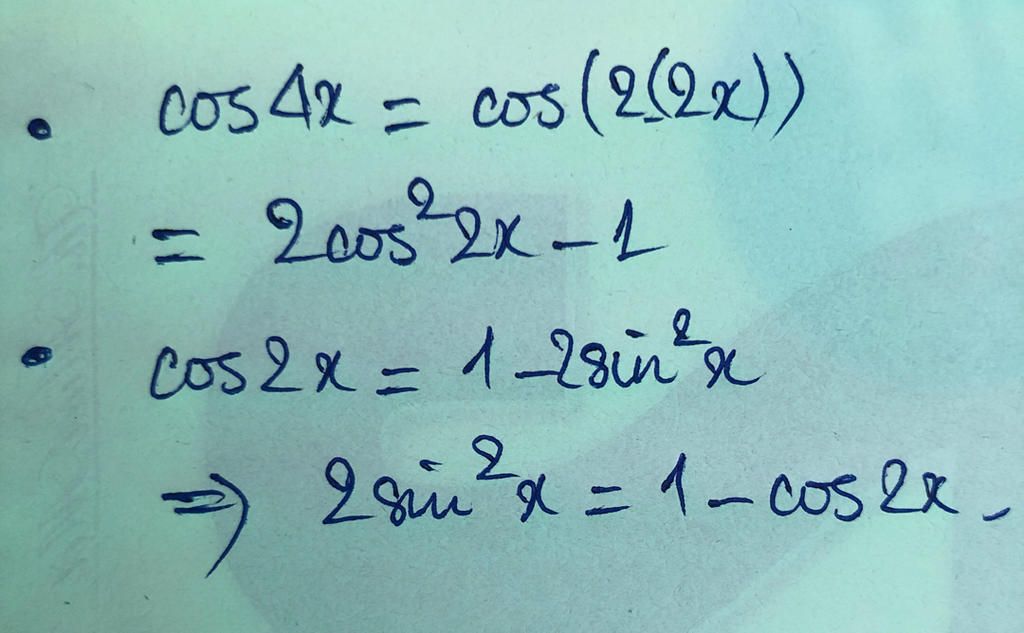 • cos4x = cos(2(2x))
= 2cos²2x - 1
• cos2x = 1 - 2sin²x
⇒ 2sin²x = 1 - cos2x.